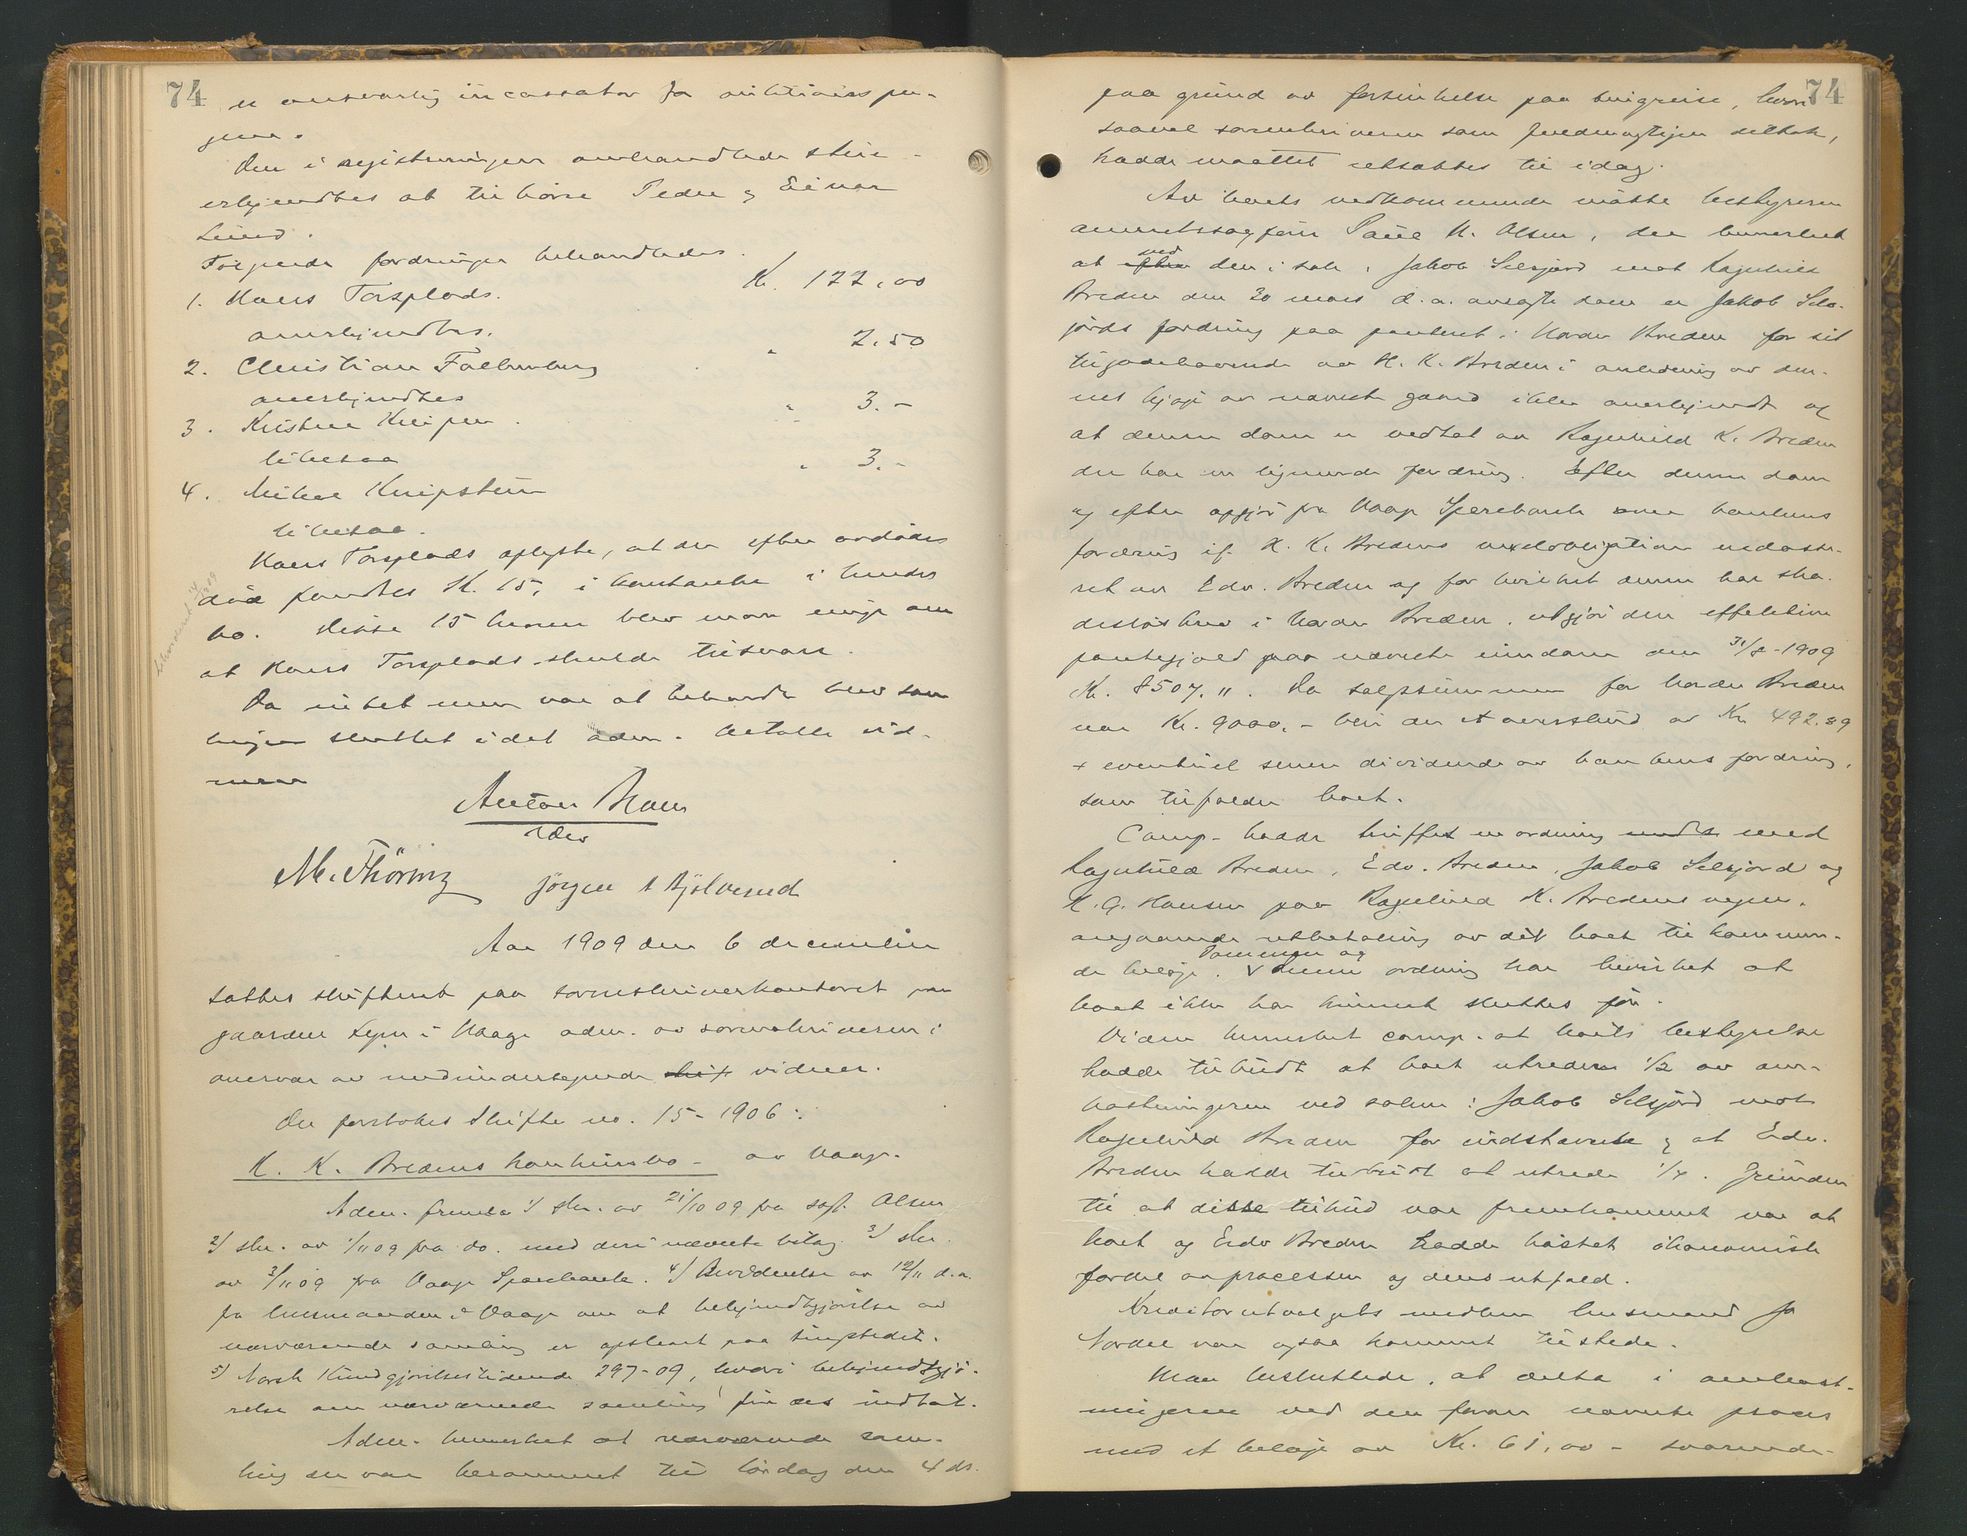 74
er ansvarlig incassator for auktionspen-
gene.
Den i registreringen omhandlede stue
erkjendtes at tilhøre Peder og Einar
Lund.
Følgende fordringer behandledes.
1. Hans Torsplads. Kr. 122,00
anerkjendtes.
2. Christian Falkenberg " 2,50
anerkjendtes
3. Kristine Kleipen. " 3.-
likesaa
4. Mikal " 3.-
likesaa.
Hans Torsplads oplyste, at der efter avdødes
død fandtes Kr. 15, i kontanter i hendes
bo. Disse 15 kroner blev man enige om
at Hans Torsplads skulde tilsvare.
Da intet mer var at behandle blev sam
lingen sluttet idet adm. betalte vid-
nerne
Anton
M. Thöring Jørgen
Aar 1909 den 6 december
sattes skifteret paa sorenskriverkontoret paa
gaarden i Vaage adm. av sorenskriveren i
overvær av medundertegnede skift vidner.
Der foretokes Skifte no. 15-1906:
K. K. Bredens konkursbo - av Vaage.
Adm. fremla 1) skr. av 21/10 09 fra sagf. Olsen
2) skr. av 1/11 09 fra do. med deri nævnte bilag. 3) skr.
av 3/11 09 fra Vaage Sparebank. 4) Bevidnelse av 12/11 d.a.
fra lensmanden i Vaage om at bekjendtgjørelse av
nærværende samling er opslaat paa tingstedet.
5) Norsk Kundgjørelsestidende 297-09, hvori bekjendtgjø-
relse om nærværende samling findes indtat.
Adm. bemerket at nærværende sam-
ling der var berammet til lørdag den 4 ds.
74
paa grund av forsinkelse paa tingreise, hvori
saavel sorenskriveren som fuldmægtigen deltok,
hadde maattet utsættes til idag.
Av boets vedkommende møtte bestyreren
overretssagfører Paul H. Olsen, der bemerket
at efter ved den i sak: Jakob Selsjord mot Ragnhild
Breden den 30 mars d.a. avsagte dom er Jakob Sels-
jords fordring paa panteret i Nordre Breden for sit
tilgodehavende av K. K. Breden i anledning av den-
nes kjøp av nævnte gaard ikke anerkjendt og
at denne dom er vedtat av Ragnhild K. Breden
der har en lignende fordring. Efter denne dom
og efter opgjør fra Vaage Sparebank over bankens
fordring if. K. K. Bredens vexelobligation endosse-
ret av Edv. Breden og for hvilket denne har ska-
desløsbrev i Nordre Breden, utgjør den effektive
pantegjæld paa nævnte eiendom den 31/8-1909
Kr. 8507. 11. Da salgssummen for Nordre Breden
var Kr. 9000,- blir der et overskud av Kr. 492.89
+ eventuel senere dividende av bankens fordring,
som tilfalder boet.
Comp. hadde truffet en ordning med med
Ragnhild Breden, Edv. Breden, Jakob Selsjord og
K. G. Hansen paa Ragnhild K. Bredens vegne,
angaaende utbetaling av det boet tilkommen-
de beløp. Dommen og denne ordning har bevirket at
boet ikke har kunnet sluttes før.
Videre bemerket comp. at boets bestyrelse
hadde tilbudt at boet utreder 1/2 av om-
kostningerne ved saken: Jakob Selsjord mot
Ragnhild Breden for indstævnte og at Edv.
Breden hadde tilbudt at utrede 1/4. Grunden
til at disse tilbud var fremkommet var at
boet og Edv Breden hadde høstet økonomisk
fordel av processen og dens utfald.
Kreditorutvalgets medlem lensmand Jo
Nordal var ogsaa kommet tilstede.
Man besluttede, at delta i omkost-
ningerne ved den foran nævnte proces
med et beløp av Kr. 61,00 - svarende